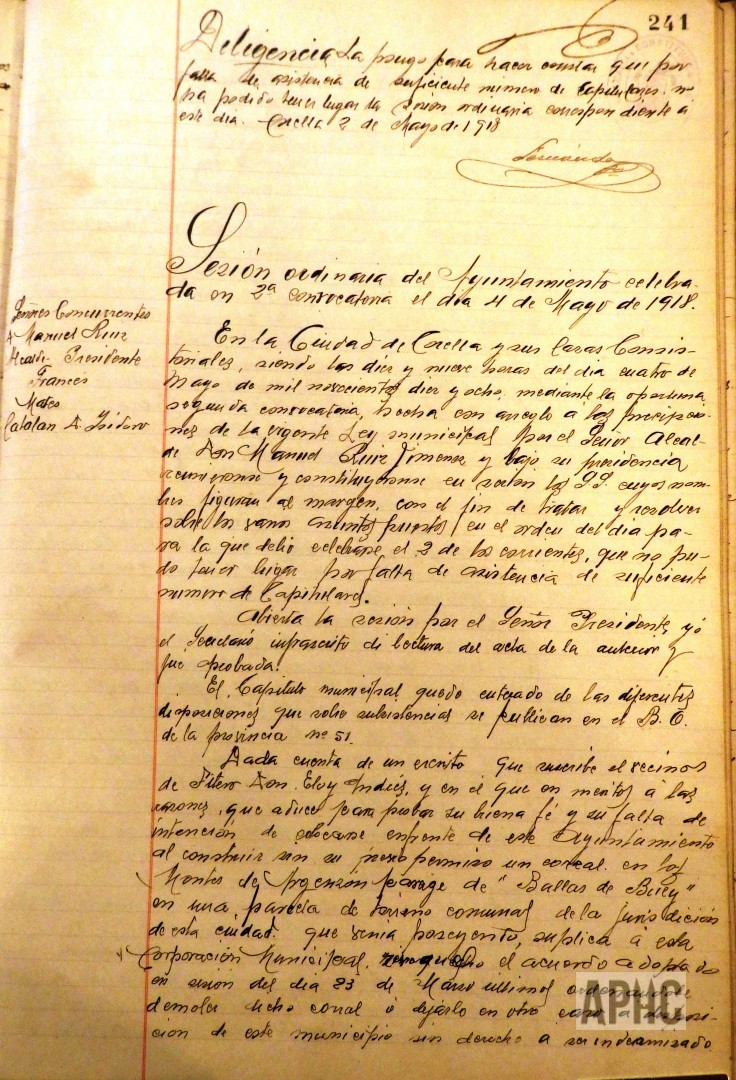 241
Diligencia La pongo para hacer constar que por
falta de asistencia de suficiente numero de Capitulares no
ha podido tener lugar la sesion ordinaria correspondiente á
este dia. Corella 2 de Mayo de 1918
Sesión ordinaria del Ayuntamiento celebra-
da en 2ª convocatoria el dia 4 de Mayo de 1918.
Señores Concurrentes
Manuel Ruiz
Alcalde Presidente
Frances
Mateo
Catalan D. Isidoro
En la Ciudad de Corella y sus Casas Consis-
toriales, siendo las diez y nueve horas del dia cuatro de
Mayo de mil novecientos diez y ocho, mediante la oportuna
segunda convocatoria, hecha con arreglo a las prescripcio-
nes de la vigente Ley municipal por el Señor Alcal-
de Don Manuel Ruiz Jimenez y bajo su presidencia
reunieronse y constituyeronse en sesion los SS. cuyos nom-
bres figuran al margen, con el fin de tratar y resolver
sobre los varios asuntos puestos en el orden del dia pa-
ra la que debió celebrarse el 2 de los corrientes, que no pu-
do tener lugar por falta de asistencia de suficiente
numero de Capitulares.
Abierta la sesión por el Señor Presidente, yó
el Secretario infrascrito di lectura del acta de la anterior y
fue aprobada.
El Capitulo municipal quedó enterado de las diferentes
disposiciones que sobre subsistencias se publican en el B. O.
de la provincia nº 51.
Dada cuenta de un escrito que suscribe el vecino
de Fitero Don Eloy Andrés, y en el que en meritos a las
razones que aduce para probar su buena fé y su falta de
intención de colocarse enfrente de este Ayuntamiento
al construir sin su previo permiso un corral en los
Montes de Argenzón paraje de "Ballas de
en una parcela de terreno comunal de la jurisdición
de esta ciudad que venia poseyendo, suplica á esta
Corporación Municipal, el acuerdo adoptado
en sesion del dia 23 de Marzo ultimo ordenandole
demoler dicho corral ó dejarlo en otro caso a disposi-
cion de este municipio sin derecho a ser indemnizado
APHC